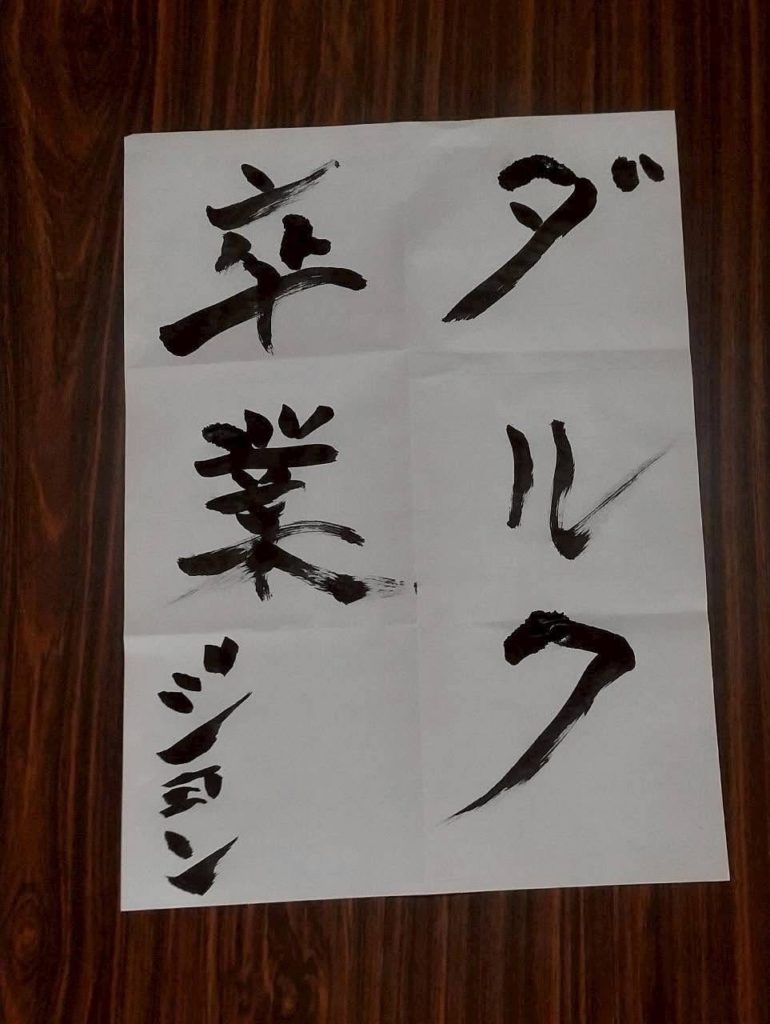 ダルク
卒業
ジョン